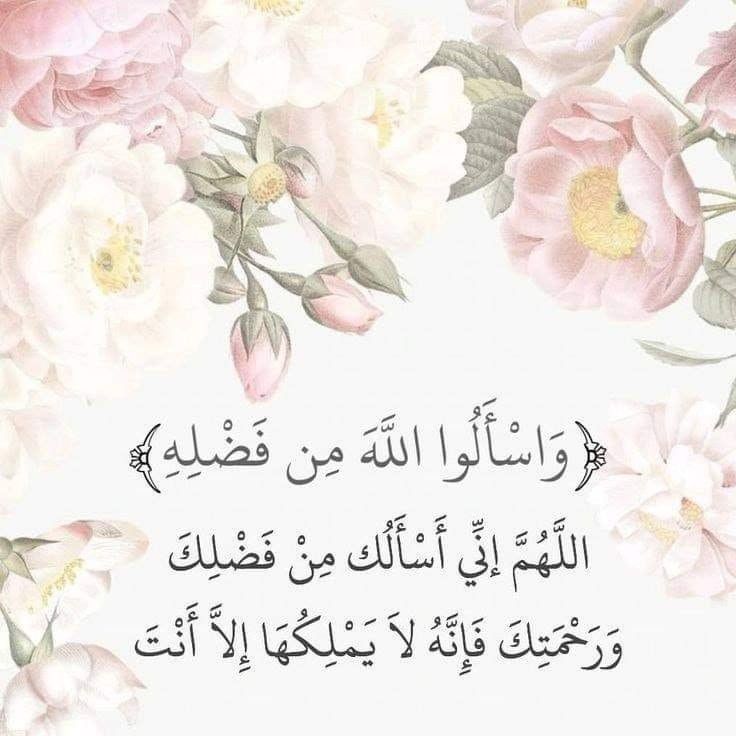 ﴿وَاسْأَلُوا اللَّهَ مِن فَضْلِهِ﴾
اللَّهُمَّ إِنِّي أَسْأَلُك مِنْ فَضْلِكَ
وَرَحْمَتِكَ فَإِنَّهُ لاَ يَمْلِكُهَا إِلاَّ أَنْتَ